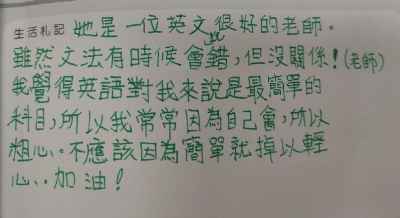 生活札記 她是一位英文很好的老師。
雖然文法有時候會出錯,但沒關係!(老師)
我覺得英語對我來說是最簡單的
科目,所以我常常因為自己會,所以
粗心。不應該因為簡單就掉以輕
心..加油!